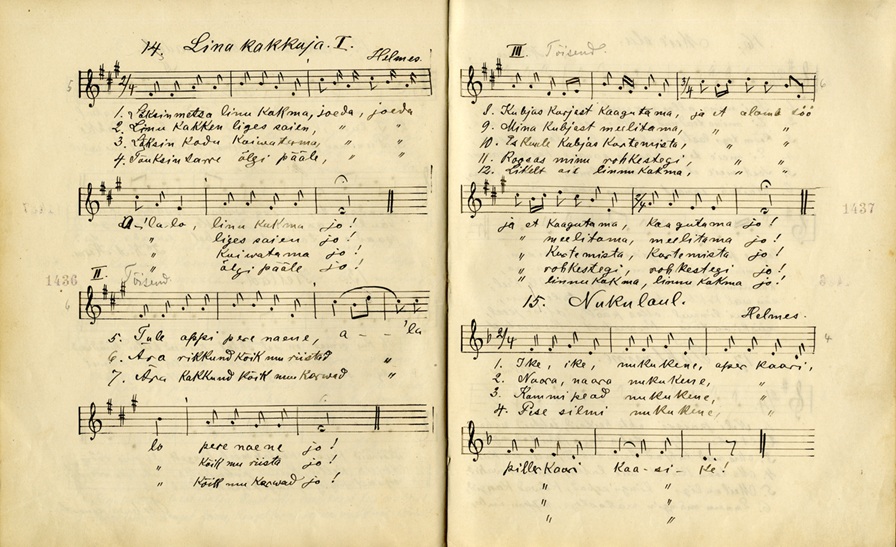 14. Lina kakkuja. I.
Helmes.
2/4
5
1. Läksin metsa linu kakma, joeda, joeda
2. Linu kakken liges saien, " "
3. Läksin kodu kuiwatama, " "
4. sarre õlgi pääle, " "
a-'lalo, linu kakma jo!
" liges saien jo!
" kuiwatama jo!
" õlgi pääle jo!
1436
II Tõisend.
6
5. Tule appi pere naene, a - - 'la
6. Ära rikkund kõik mu riistad "
7. Ära kakkund kõik mu karwad "
lo pere naene jo!
" kõik mu riista jo!
" kõik mu karwad jo!
III Tõisend.
3/4
8. Kubjas karjest kaagutama, ja et aland töö
9. Mina kubjest meelitama, " "
10. kubjas kortemista, " "
11. Roosas minu rohkestegi, " "
12. linnu kakma, " "
2/4
1437
ja et kaagutama, kaagutama jo!
" meelitama, meelitama jo!
" kortemista, kortemista jo!
" rohkestegi, rohkestegi jo!
" linnu kakma, linnu kakma jo!
15. Nuku laul.
Helmes.
2/4
4
1. Ike, ike, nukukene, aper kaari,
2. Naara, naara nukukene, "
3. Kammi pead nukukene, "
4. Pese silmi nukukene, "
piller kaari kaa-si-ke!
" "
" "
" "